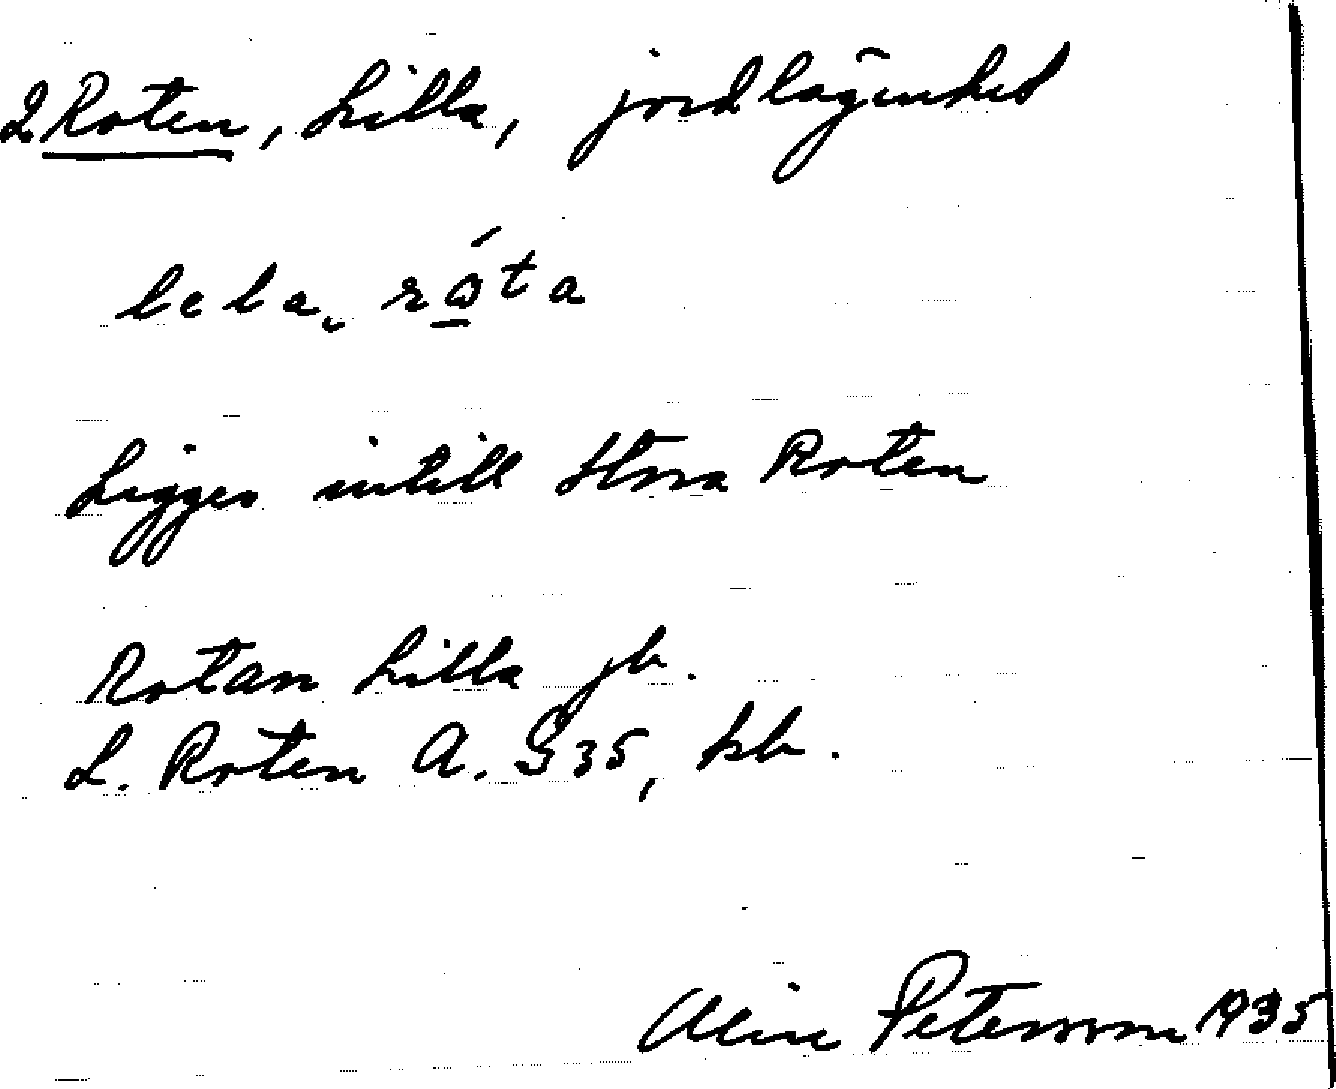 2 Roten, Lilla, jordlägenhet
lela rǻ̱ta
Ligger intill Stora Roten
Rotan Lilla jb.
L. Roten A. § 35, kb.
Aline Petersson 1935